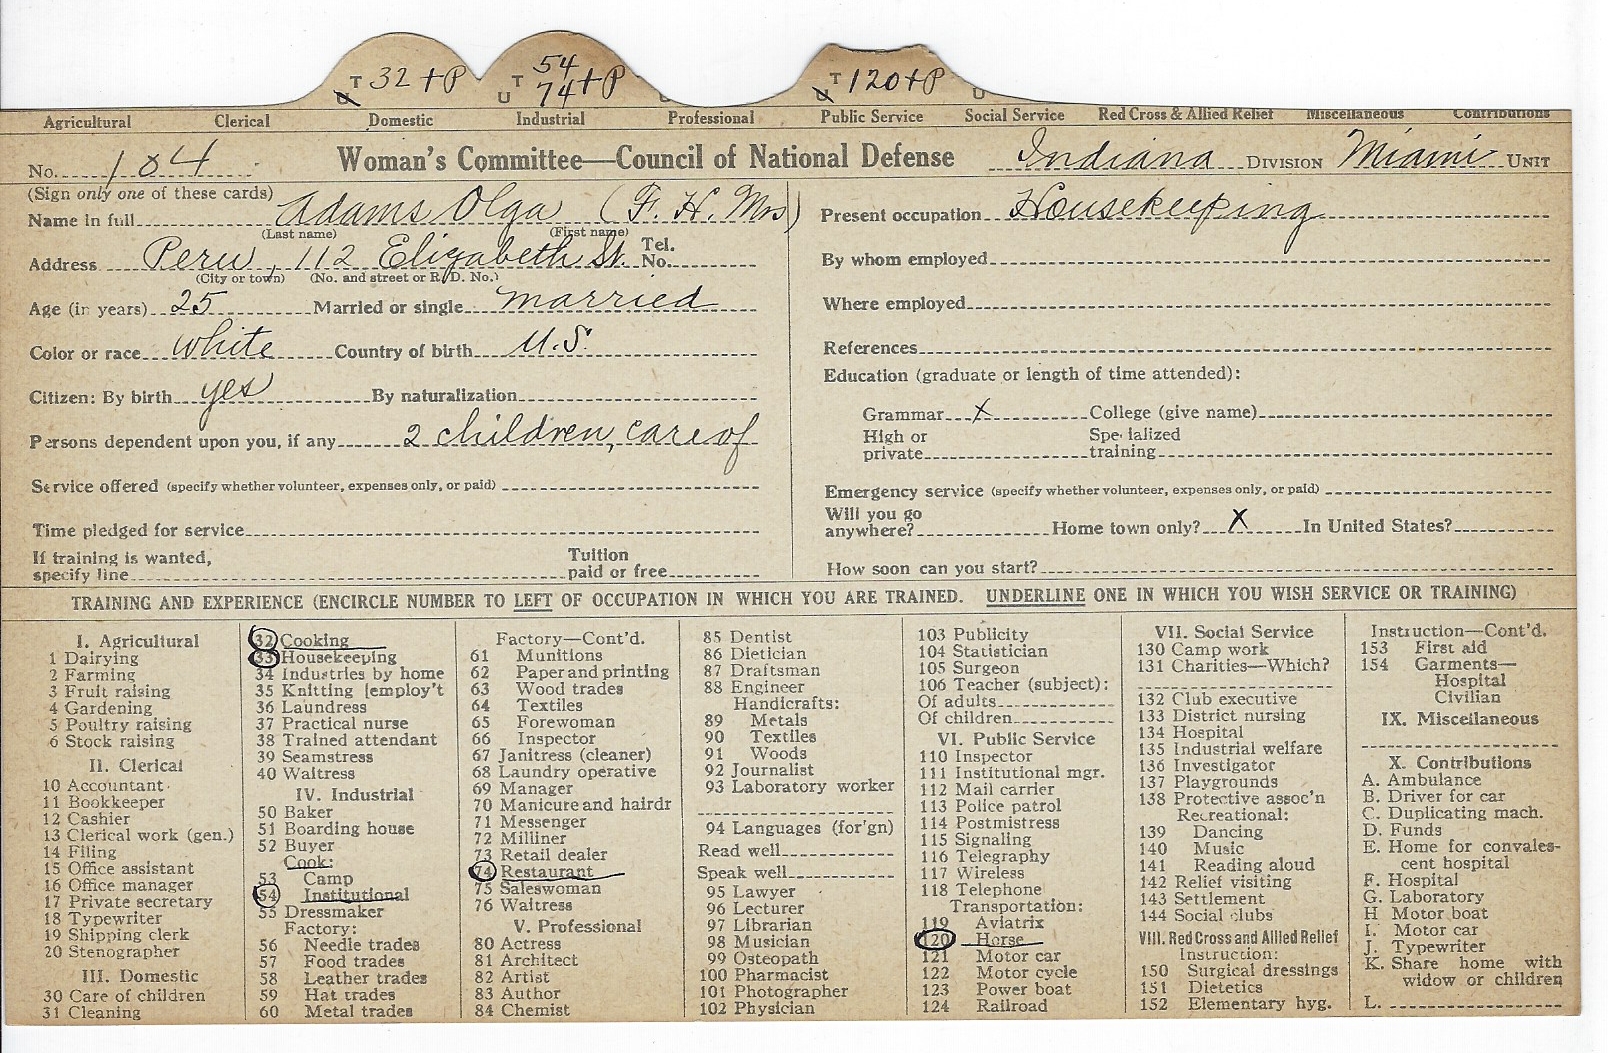 T 32 + P T 54 T 120 + P
U U 74 + P U U
Agricultural Clerical Domestic Industrial Professional Public Service Social Service Red Cross & Allied Relief Miscellaneous Contributions
No. 184 Woman's Committee—Council of National Defense Indiana DIVISION Miami UNIT
(Sign only one of these cards)
Name in full Adams Olga (F. H. Mrs)
(Last name) (First name)
Address Peru, 112 Elizabeth St. Tel. No.
(City or town) (No. and street or R. D. No.)
Age (in years) 25 Married or single married
Color or race white Country of birth U.S.
Citizen: By birth yes By naturalization
Persons dependent upon you, if any 2 children, care of
Service offered (specify whether volunteer, expenses only, or paid)
Time pledged for service
If training is wanted,
specify line Tuition paid or free
Present occupation Housekeeping
By whom employed
Where employed
References
Education (graduate or length of time attended):
Grammar X College (give name)
High or private Specialized training
Emergency service (specify whether volunteer, expenses only, or paid)
Will you go
anywhere? Home town only? X In United States?
How soon can you start?
TRAINING AND EXPERIENCE (ENCIRCLE NUMBER TO LEFT OF OCCUPATION IN WHICH YOU ARE TRAINED. UNDERLINE ONE IN WHICH YOU WISH SERVICE OR TRAINING)
I. Agricultural
1 Dairying
2 Farming
3 Fruit raising
4 Gardening
5 Poultry raising
6 Stock raising
II. Clerical
10 Accountant
11 Bookkeeper
12 Cashier
13 Clerical work (gen.)
14 Filing
15 Office assistant
16 Office manager
17 Private secretary
18 Typewriter
19 Shipping clerk
20 Stenographer
III. Domestic
30 Care of children
31 Cleaning
32 Cooking
33 Housekeeping
34 Industries by home
35 Knitting [employ't
36 Laundress
37 Practical nurse
38 Trained attendant
39 Seamstress
40 Waitress
IV. Industrial
50 Baker
51 Boarding house
52 Buyer
Cook:
53 Camp
54 Institutional
55 Dressmaker
Factory:
56 Needle trades
57 Food trades
58 Leather trades
59 Hat trades
60 Metal trades
Factory—Cont'd.
61 Munitions
62 Paper and printing
63 Wood trades
64 Textiles
65 Forewoman
66 Inspector
67 Janitress (cleaner)
68 Laundry operative
69 Manager
70 Manicure and hairdr
71 Messenger
72 Milliner
73 Retail dealer
74 Restaurant
75 Saleswoman
76 Waitress
V. Professional
80 Actress
81 Architect
82 Artist
83 Author
84 Chemist
85 Dentist
86 Dietician
87 Draftsman
88 Engineer
Handicrafts:
89 Metals
90 Textiles
91 Woods
92 Journalist
93 Laboratory worker
94 Languages (for'gn)
Read well
Speak well
95 Lawyer
96 Lecturer
97 Librarian
98 Musician
99 Osteopath
100 Pharmacist
101 Photographer
102 Physician
103 Publicity
104 Statistician
105 Surgeon
106 Teacher (subject):
Of adults
Of children
VI. Public Service
110 Inspector
111 Institutional mgr.
112 Mail carrier
113 Police patrol
114 Postmistress
115 Signaling
116 Telegraphy
117 Wireless
118 Telephone
Transportation:
119 Aviatrix
120 Horse
121 Motor car
122 Motor cycle
123 Power boat
124 Railroad
VII. Social Service
130 Camp work
131 Charities—Which?
132 Club executive
133 District nursing
134 Hospital
135 Industrial welfare
136 Investigator
137 Playgrounds
138 Protective assoc'n
Recreational:
139 Dancing
140 Music
141 Reading aloud
142 Relief visiting
143 Settlement
144 Social clubs
VIII. Red Cross and Allied Relief
Instruction:
150 Surgical dressings
151 Dietetics
152 Elementary hyg.
Instruction—Cont'd.
153 First aid
154 Garments—
Hospital
Civilian
IX. Miscellaneous
X. Contributions
A. Ambulance
B. Driver for car
C. Duplicating mach.
D. Funds
E. Home for convales-
cent hospital
F. Hospital
G. Laboratory
H Motor boat
I. Motor car
J. Typewriter
K. Share home with
widow or children
L.